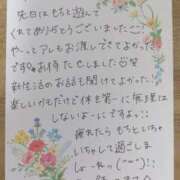 先日はもちと遊んで
くれてありがとうございました
やっとアレもお渡しできてよかった
です お待たせしました
新生活のお話も聞けてよかった!
楽しいがちだけど休も第一に無理は
しないよーにですよっ!!
疲れたら もちといちゃ
いちゃして過ごしま
しょーねっ(^ー^)!